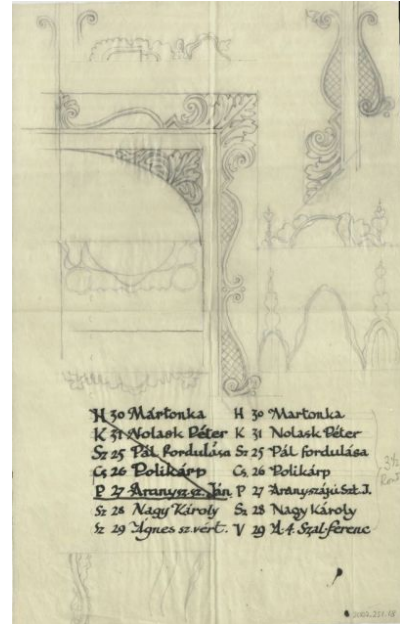 H 30 Mártonka
K 31 Nolask Péter
Sz 25 Pál fordulása
Cs 26 Polikárp
P 27 Aranysz. sz. Ján
Sz 28 Nagy Károly
Sz 29 Ágnes sz. vért.
H 30 Martonka
K 31 Nolask Péter
Sz 25 Pál fordulása
Cs 26 Polikárp
P 27 Aranyszájú Szt. J.
Sz 28 Nagy Károly
V 29 A. 4. Szal. ferenc